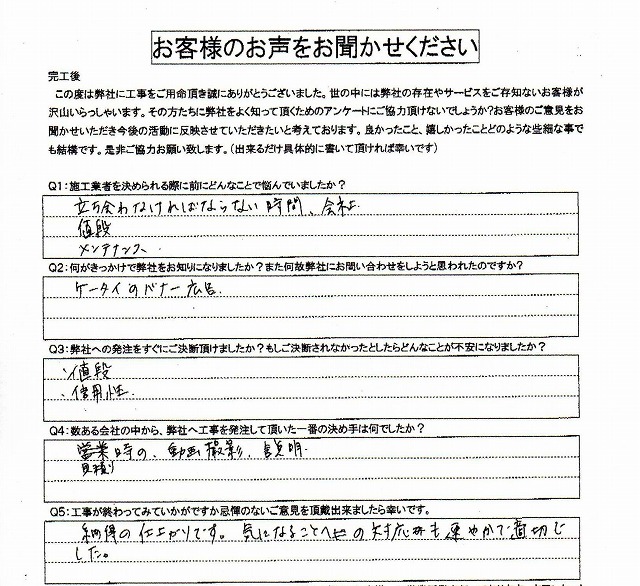 お客様のお声をお聞かせください
完工後
この度は弊社に工事をご用命頂き誠にありがとうございました。世の中には弊社の存在やサービスをご存知ないお客様が
沢山いらっしゃいます。その方たちに弊社をよく知って頂くためのアンケートにご協力頂けないでしょうか?お客様のご意見をお
聞かせいただき今後の活動に反映させていただきたいと考えております。良かったこと、嬉しかったことどのような些細な事で
も結構です。是非ご協力お願い致します。(出来るだけ具体的に書いて頂ければ幸いです)
Q1:施工業者を決められる際に前にどんなことで悩んでいましたか?
立ち会わなければならない時間、会社
値段
メンテナンス
Q2:何がきっかけで弊社をお知りになりましたか?また何故弊社にお問い合わせをしようと思われたのですか?
ケータイのバナー広告
Q3:弊社への発注をすぐにご決断頂けましたか?もしご決断されなかったとしたらどんなことが不安になりましたか?
値段
・信用性
Q4:数ある会社の中から、弊社へ工事を発注して頂いた一番の決め手は何でしたか?
営業時の、動画撮影、説明
見積り
Q5:工事が終わってみていかがですか忌憚のないご意見を頂戴出来ましたら幸いです。
納得の仕上がりです。気になることへの対応も速やかで適切で
した。